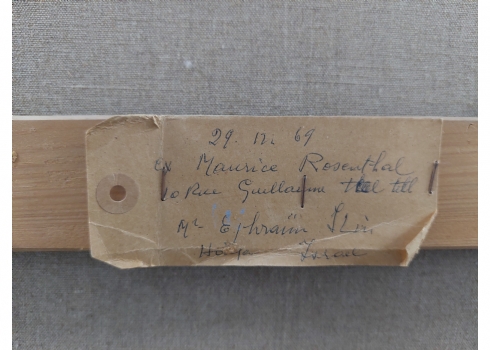 29. IV. 69
Ex Maurice Rosenthal
10 Rue Guillaume Tell
Mr Ephraïm
Israel